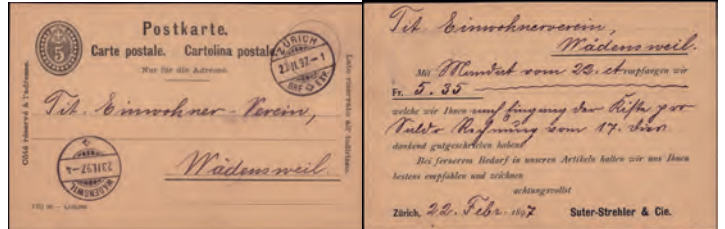 Postkarte.
Carte postale. Cartolina postale.
Nur für die Adresse.
5
ZÜRICH
23.II.97.-1
BRF. EXP.
Côté réservé à l'adresse.
Lato riservato all'indirizzo.
Tit. Einwohner-Verein,
Wädensweil.
WÄDENSWIL
23.II.97.-4
Tit. Einwohnerverein,
Wädensweil.
Mit Mandat vom 22. ct empfangen wir
Fr. 5.35
welche wir Ihnen nach Eingang der Kiste per
Saldo Rechnung vom 17. dies
dankend gutgeschrieben haben.
Bei fernerem Bedarf in unseren Artikeln halten wir uns Ihnen
bestens empfohlen und zeichnen
achtungsvollst
Zürich, 22. Febr. 1897 Suter-Strehler & Cie.